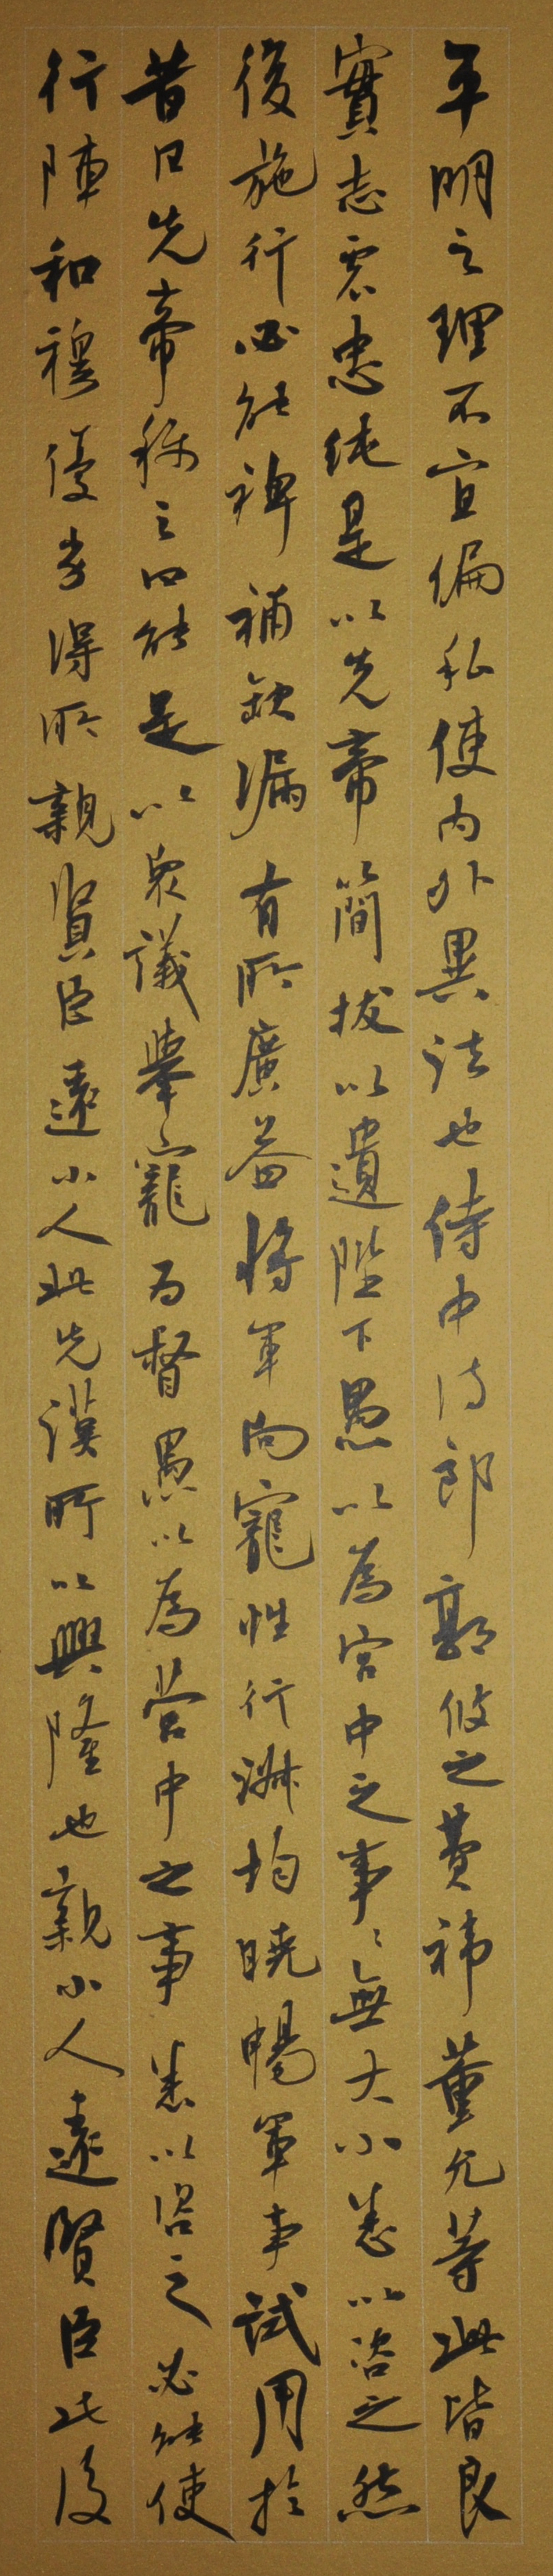 平明之理不宜偏私使内外異法也侍中侍郎郭攸之費禕董允等此皆良
實志慮忠純是以先帝簡拔以遺陛下愚以為宮中之事〻無大小悉以咨之然
後施行必能裨補缺漏有所廣益将軍向寵性行淑均曉暢軍事試用於
昔日先帝称之曰能是以衆議舉寵为督愚以為營中之事悉以咨之必能使
行陣和穆優劣得所親賢臣遠小人此先漢所以興隆也親小人遠賢臣此後